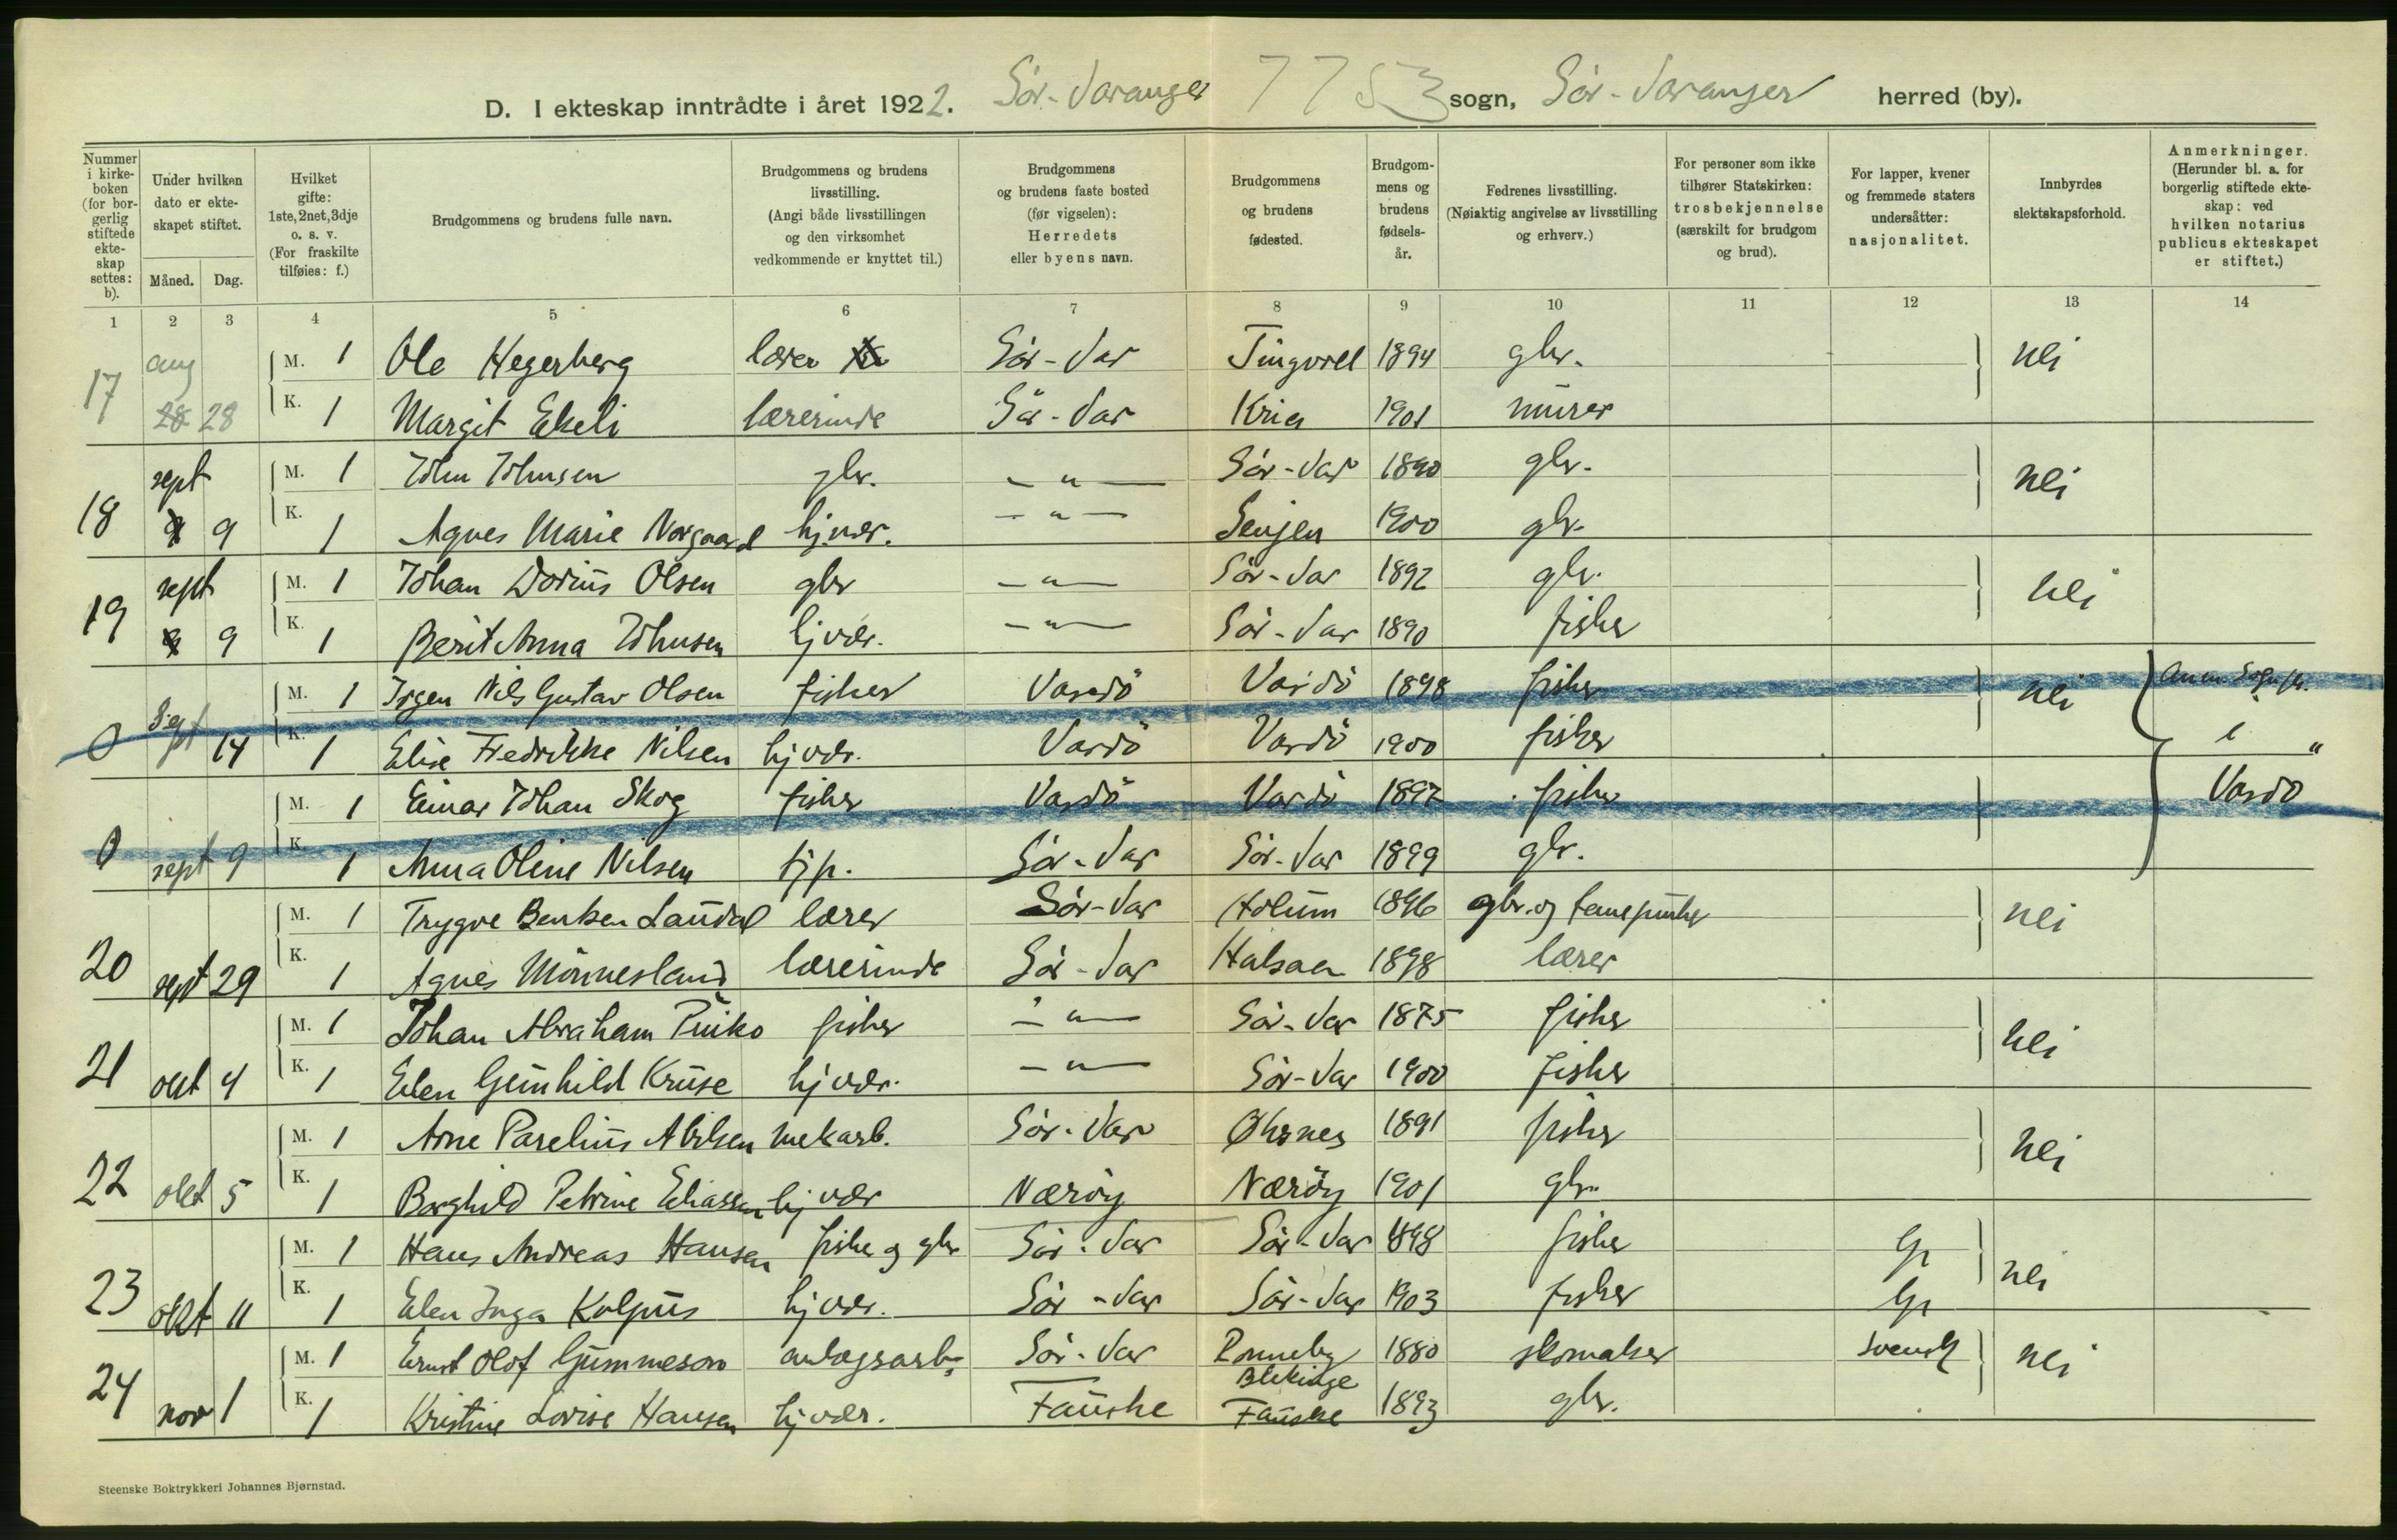 D. I ekteskap inntrådte i året 1922. Sör-Varanger 7753 sogn, Sör-Varanger herred (by).
Nummer i kirkeboken (for borgerlig stiftede ekteskap settes: b).
Under hvilken dato er ekteskapet stiftet.
Måned. Dag.
Hvilket gifte: 1ste, 2net, 3dje o. s. v. (For fraskilte tilføies: f.)
Brudgommens og brudens fulle navn.
Brudgommens og brudens livsstilling. (Angi både livsstillingen og den virksomhet vedkommende er knyttet til.)
Brudgommens og brudens faste bosted (før vigselen): Herredets eller byens navn.
Brudgommens og brudens fødested.
Brudgommens og brudens fødselsår.
Fedrenes livsstilling. (Nøiaktig angivelse av livsstilling og erhverv.)
For personer som ikke tilhører Statskirken: trosbekjennelse (særskilt for brudgom og brud).
For lapper, kvener og fremmede staters undersåtter: nasjonalitet.
Innbyrdes slektskapsforhold.
Anmerkninger. (Herunder bl. a. for borgerlig stiftede ekteskap: ved hvilken notarius publicus ekteskapet er stiftet.)
1 2 3 4 5 6 7 8 9 10 11 12 13 14
17 aug M. 1 Ole Hegerberg lærer Sör-Var Tingvoll 1894 gbr. nei
28 28 K. 1 Margit Ekeli lærerinde Sör-Var Kria 1901 murer
18 sept M. 1 John Johnsen gbr. -"- Sör-Var 1890 gbr. nei
9 9 K. 1 Agnes Marie Norgaard hj.vær. -"- Senjen 1900 gbr.
19 sept M. 1 Johan Dorius Olsen gbr -"- Sör-Var 1892 gbr. nei
9 9 K. 1 Berit Anna Johnsen hjvær. -"- Sör-Var 1890 fisker
0 Sept M. 1 Jrgen Nils Gustav Olsen fisker Vardö Vardö 1898 fisker nei
14 K. 1 Elise Fredrikke Nilsen hjvær. Vardö Vardö 1900 fisker i "
0 M. 1 Einar Johan Skog fisker Vardö Vardö 1897 fisker Vardö
sept 9 K. 1 Anna Oline Nilsen tjp. Sör-Var Sör-Var 1899 gbr.
20 M. 1 Trygve Bentsen Laudal lærer Sör-Var Holum 1896 gbr. og nei
sept 29 K. 1 Agnes Mönnesland lærerinde Sör-Var Halsaa 1898 lærer
21 M. 1 Johan Abraham Piiko fisker -"- Sör-Var 1875 fisker nei
okt 4 K. 1 Elen Gunhild Kruse hjvær. -"- Sör-Var 1900 fisker
22 M. 1 Arne Parelius Abilsen mekarb. Sör-Var Øksnes 1891 fisker nei
okt 5 K. 1 Borghild Petrine Eliassen hjvær Næröy Næröy 1901 gbr.
23 M. 1 Hans Andreas Hansen fisker og gbr Sör-Var Sör-Var 1898 fisker lp nei
okt 11 K. 1 Elen Inga Kolpus hjvær. Sör-Var Sör-Var 1903 fisker lp
24 M. 1 Ernst Olof Gummeson anlegsarb. Sör-Var Ronneby Blekinge 1880 skomaker svensk nei
nov 1 K. 1 Kristine Lovise Hansen hjvær. Fauske Fauske 1893 gbr.
Steenske Boktrykkeri Johannes Bjørnstad.